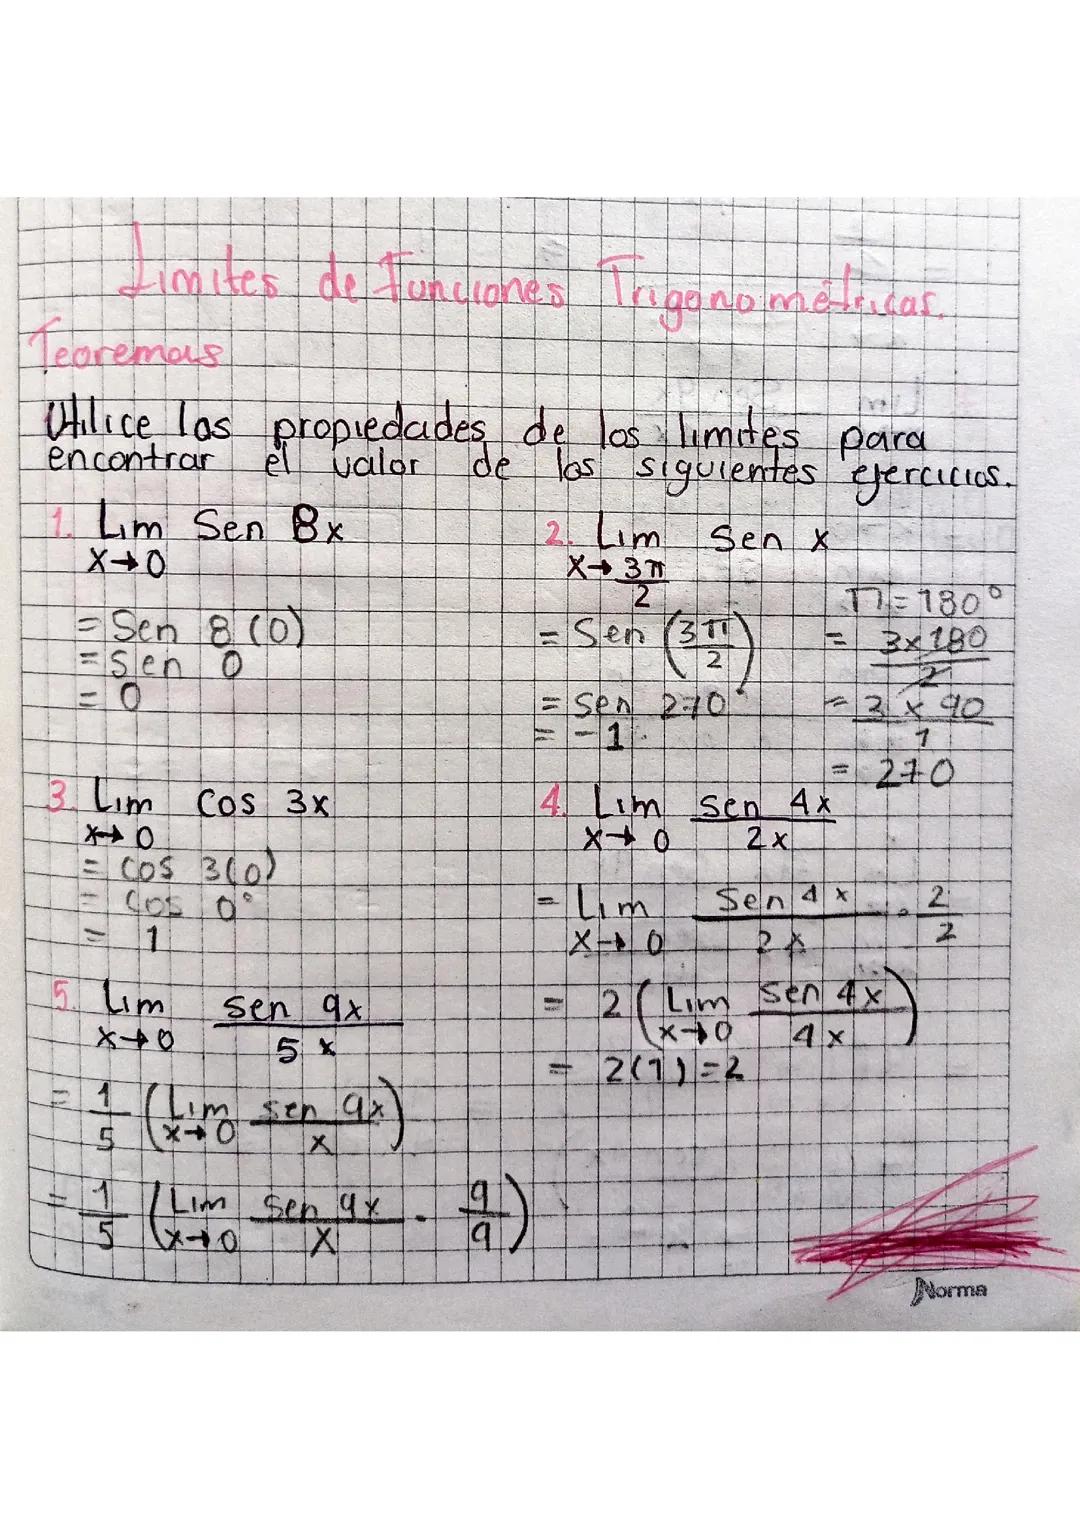 Límites de Funciones Trigonométricas.
Teoremas
Utilice las propiedades de los límites para
encontrar el valor de los siguientes ejercicios.
1. Lim Sen 8x
x→0
= Sen 8(0)
= Sen 0
= 0
2. Lim Sen x
x→ 3π/2
= Sen (3π/2)
= Sen 270°
= -1
π = 180°
= 3x180/2
= 3 x 90/1
= 270
3. Lim Cos 3x
x→0
= Cos 3(0)
= Cos 0°
= 1
4. Lim Sen 4x / 2x
x→0
= Lim Sen 4x / 2x . 2/2
x→0
= 2 (Lim Sen 4x / 4x)
x→0
= 2(1) = 2
5. Lim Sen 9x / 5x
x→0
= 1/5 (Lim Sen 9x / x)
x→0
= 1/5 (Lim Sen 9x / x . 9/9)
x→0
Norma